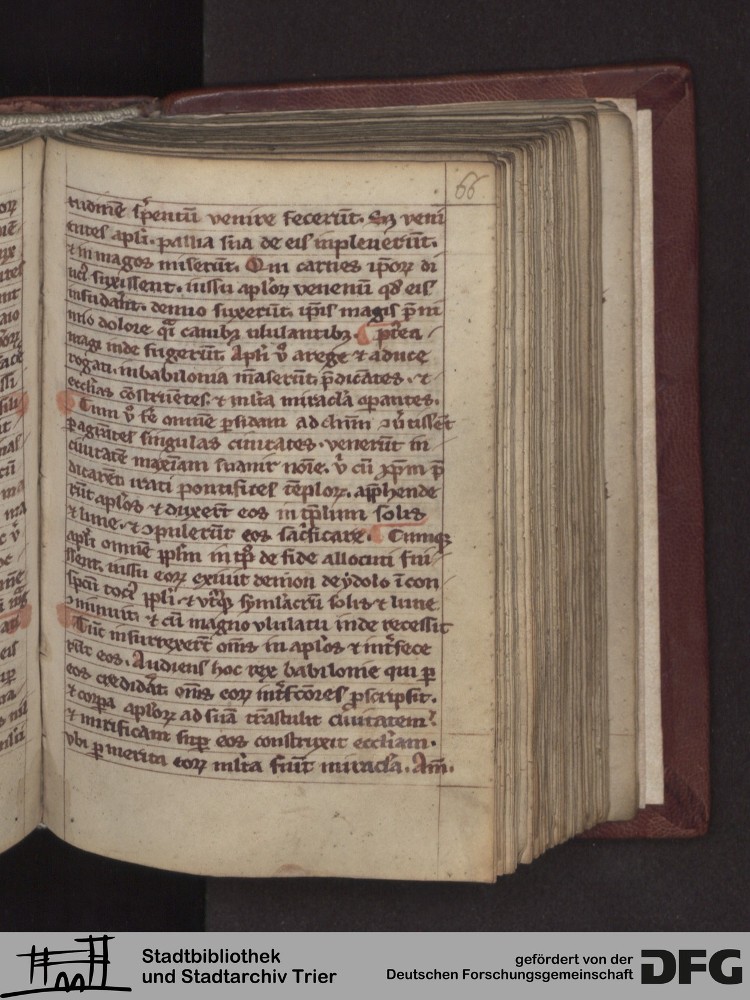 66
tudinē s̄pentū venire fecerūt. Sꝫ veni
entes apl̄i. pallia sua de eis inpleuerūt.
⁊ in magos miserūt. Qui carnes ip̄oꝝ di
uci suxissent. iussu apl̄oꝝ venenū qd̓ eis
infudāt. denuo suxerūt. ip̄is magis p̄ni
mio dolore q̄i canibꝫ ululantibꝫ. ¶ p̄t̓ea
magi inde fugerūt. Apl̄i v̊ a rege ⁊ a duce
rogati. in babilonia māserūt. p̄dicātes. ⁊
eccl̄ias cōstruētes. ⁊ ml̄ta miracl̄a oꝑantes.
Cum v̊ fe omnē ꝑsidam ad chr̄m ꝯūtissēt
ꝑagrātes singulas ciuitates. venerūt in
ciuitatē suanir noīe. v̄ cū xp̄m p̄
dicarēt irati pontifices tēploꝝ. app̄hende
rūt apl̄os ⁊ duxerūt eos in tp̄lum solis
⁊ lune. ⁊ ꝯpulerūt eos sac̓ficare. ¶ Cumqꝫ
apl̄i omnē pp̄lm in tp̄l de fide allocuti fui
ssent. iussu eoꝝ exiuit demon de ydolo ī con
spcū toci pp̄li. ⁊ vtrūqꝫ symlac̄rū solis ⁊ lune
ꝯminuit. ⁊ cū magno vlulatu inde recessit
Tūc insurrexer̄t om̄s in apl̄os ⁊ int̓fece
rūt eos. Audiens hoc rex babilonie qui ꝑ
eos credidāt. om̄s eoꝝ int̓fc̄ores ꝓscripsit.
⁊ corꝑa apl̄oꝝ ad suā trāstulit ciuitatem.
⁊ mirificam suꝑ eos construxit eccl̄iam.
vbi ꝑ merita eoꝝ ml̄ta fiūt miracl̄a. Am̄.
Stadtbibliothek
und Stadtarchiv Trier
gefördert von der
Deutschen Forschungsgemeinschaft
DFG